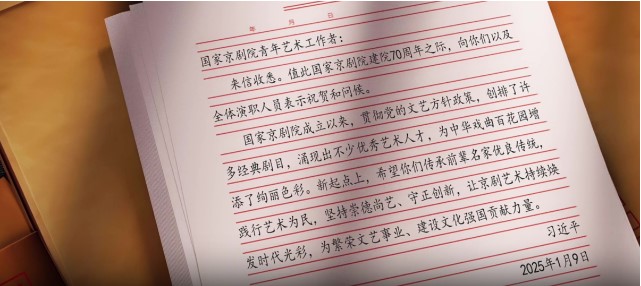 年 月 日
国家京剧院青年艺术工作者：
来信收悉。值此国家京剧院建院70周年之际，向你们以及
全体演职人员表示祝贺和问候。
国家京剧院成立以来，贯彻党的文艺方针政策，创排了许
多经典剧目，涌现出不少优秀艺术人才，为中华戏曲百花园增
添了绚丽色彩。新起点上，希望你们传承前辈名家优良传统，
践行艺术为民，坚持崇德尚艺、守正创新，让京剧艺术持续焕
发时代光彩，为繁荣文艺事业、建设文化强国贡献力量。
习近平
2025年1月9日